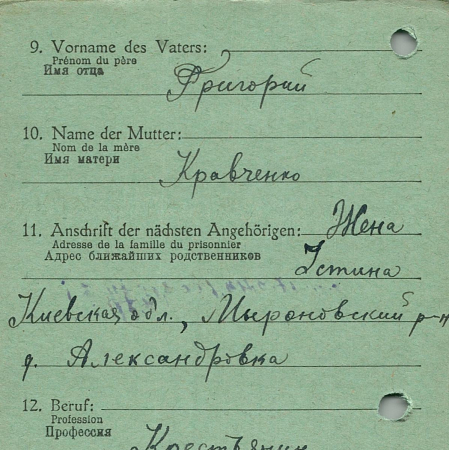 9. Vorname des Vaters:
Prénom du père
Имя отца
Григорий
10. Name der Mutter:
Nom de la mère
Имя матери
Кравченко
11. Anschrift der nächsten Angehörigen: Жена
Adresse de la famille du prisonnier
Адрес ближайших родственников
Устина
Киевская обл., Мыроновский р-н
д. Александровка
12. Beruf:
Profession
Профессия
Крестьянин